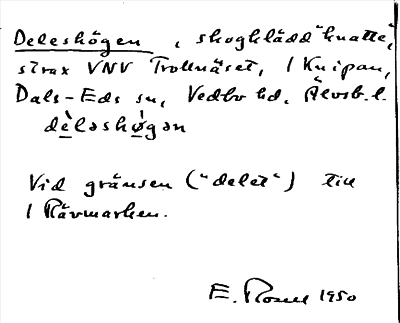 Deleshögen, skogklädd "knatte",
strax VNV Trollnäset, 1 Knipan,
Dals-Eds sn, Vedbo hd, Älvsb. l.
dèləshø̀gən
Vid gränsen ("delet") till
1 Rävmarken.
E. 1950